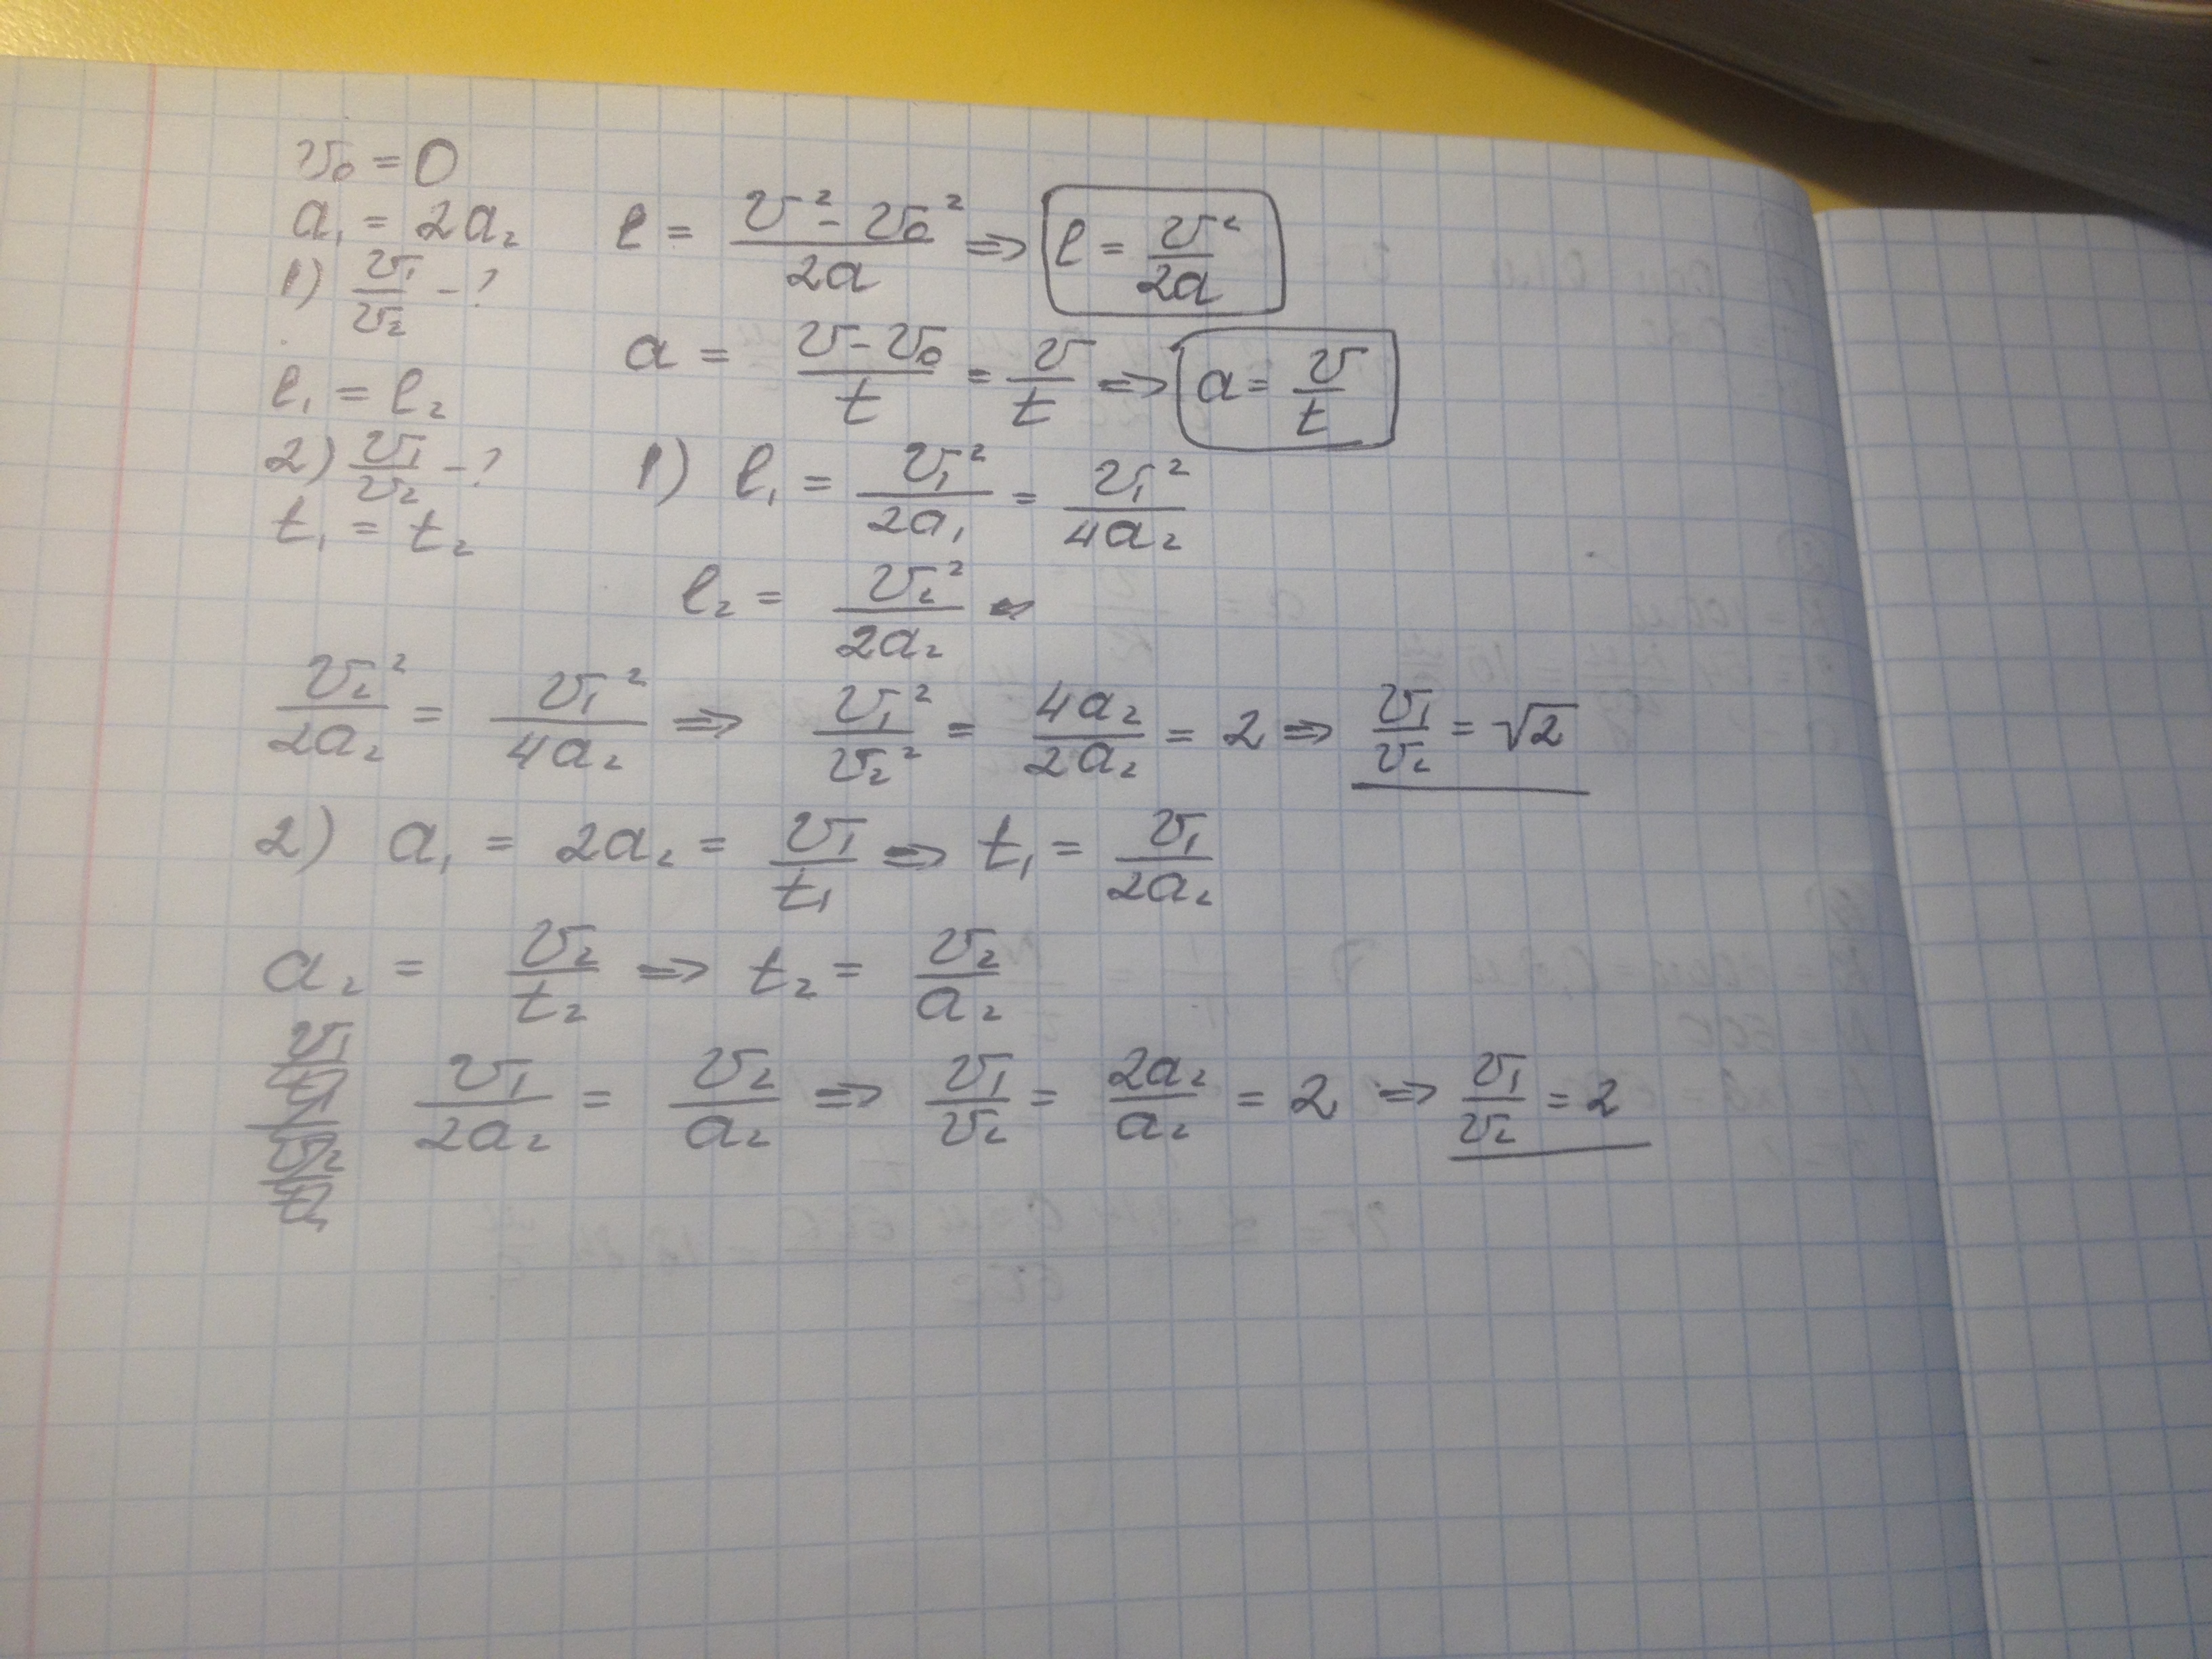 v₀ = 0
a₁ = 2a₂
1) v₁/v₂ - ?
l₁ = l₂
2) v₁/v₂ - ?
t₁ = t₂
l = (v² - v₀²)/2a ⇒ l = v²/2a
a = (v - v₀)/t = v/t ⇒ a = v/t
1) l₁ = v₁²/2a₁ = v₁²/4a₂
l₂ = v₂²/2a₂
v₂²/2a₂ = v₁²/4a₂ ⇒ v₁²/v₂² = 4a₂/2a₂ = 2 ⇒ v₁/v₂ = √2
2) a₁ = 2a₂ = v₁/t₁ ⇒ t₁ = v₁/2a₂
a₂ = v₂/t₂ ⇒ t₂ = v₂/a₂
v₁/2a₂ = v₂/a₂ ⇒ v₁/v₂ = 2a₂/a₂ = 2 ⇒ v₁/v₂ = 2